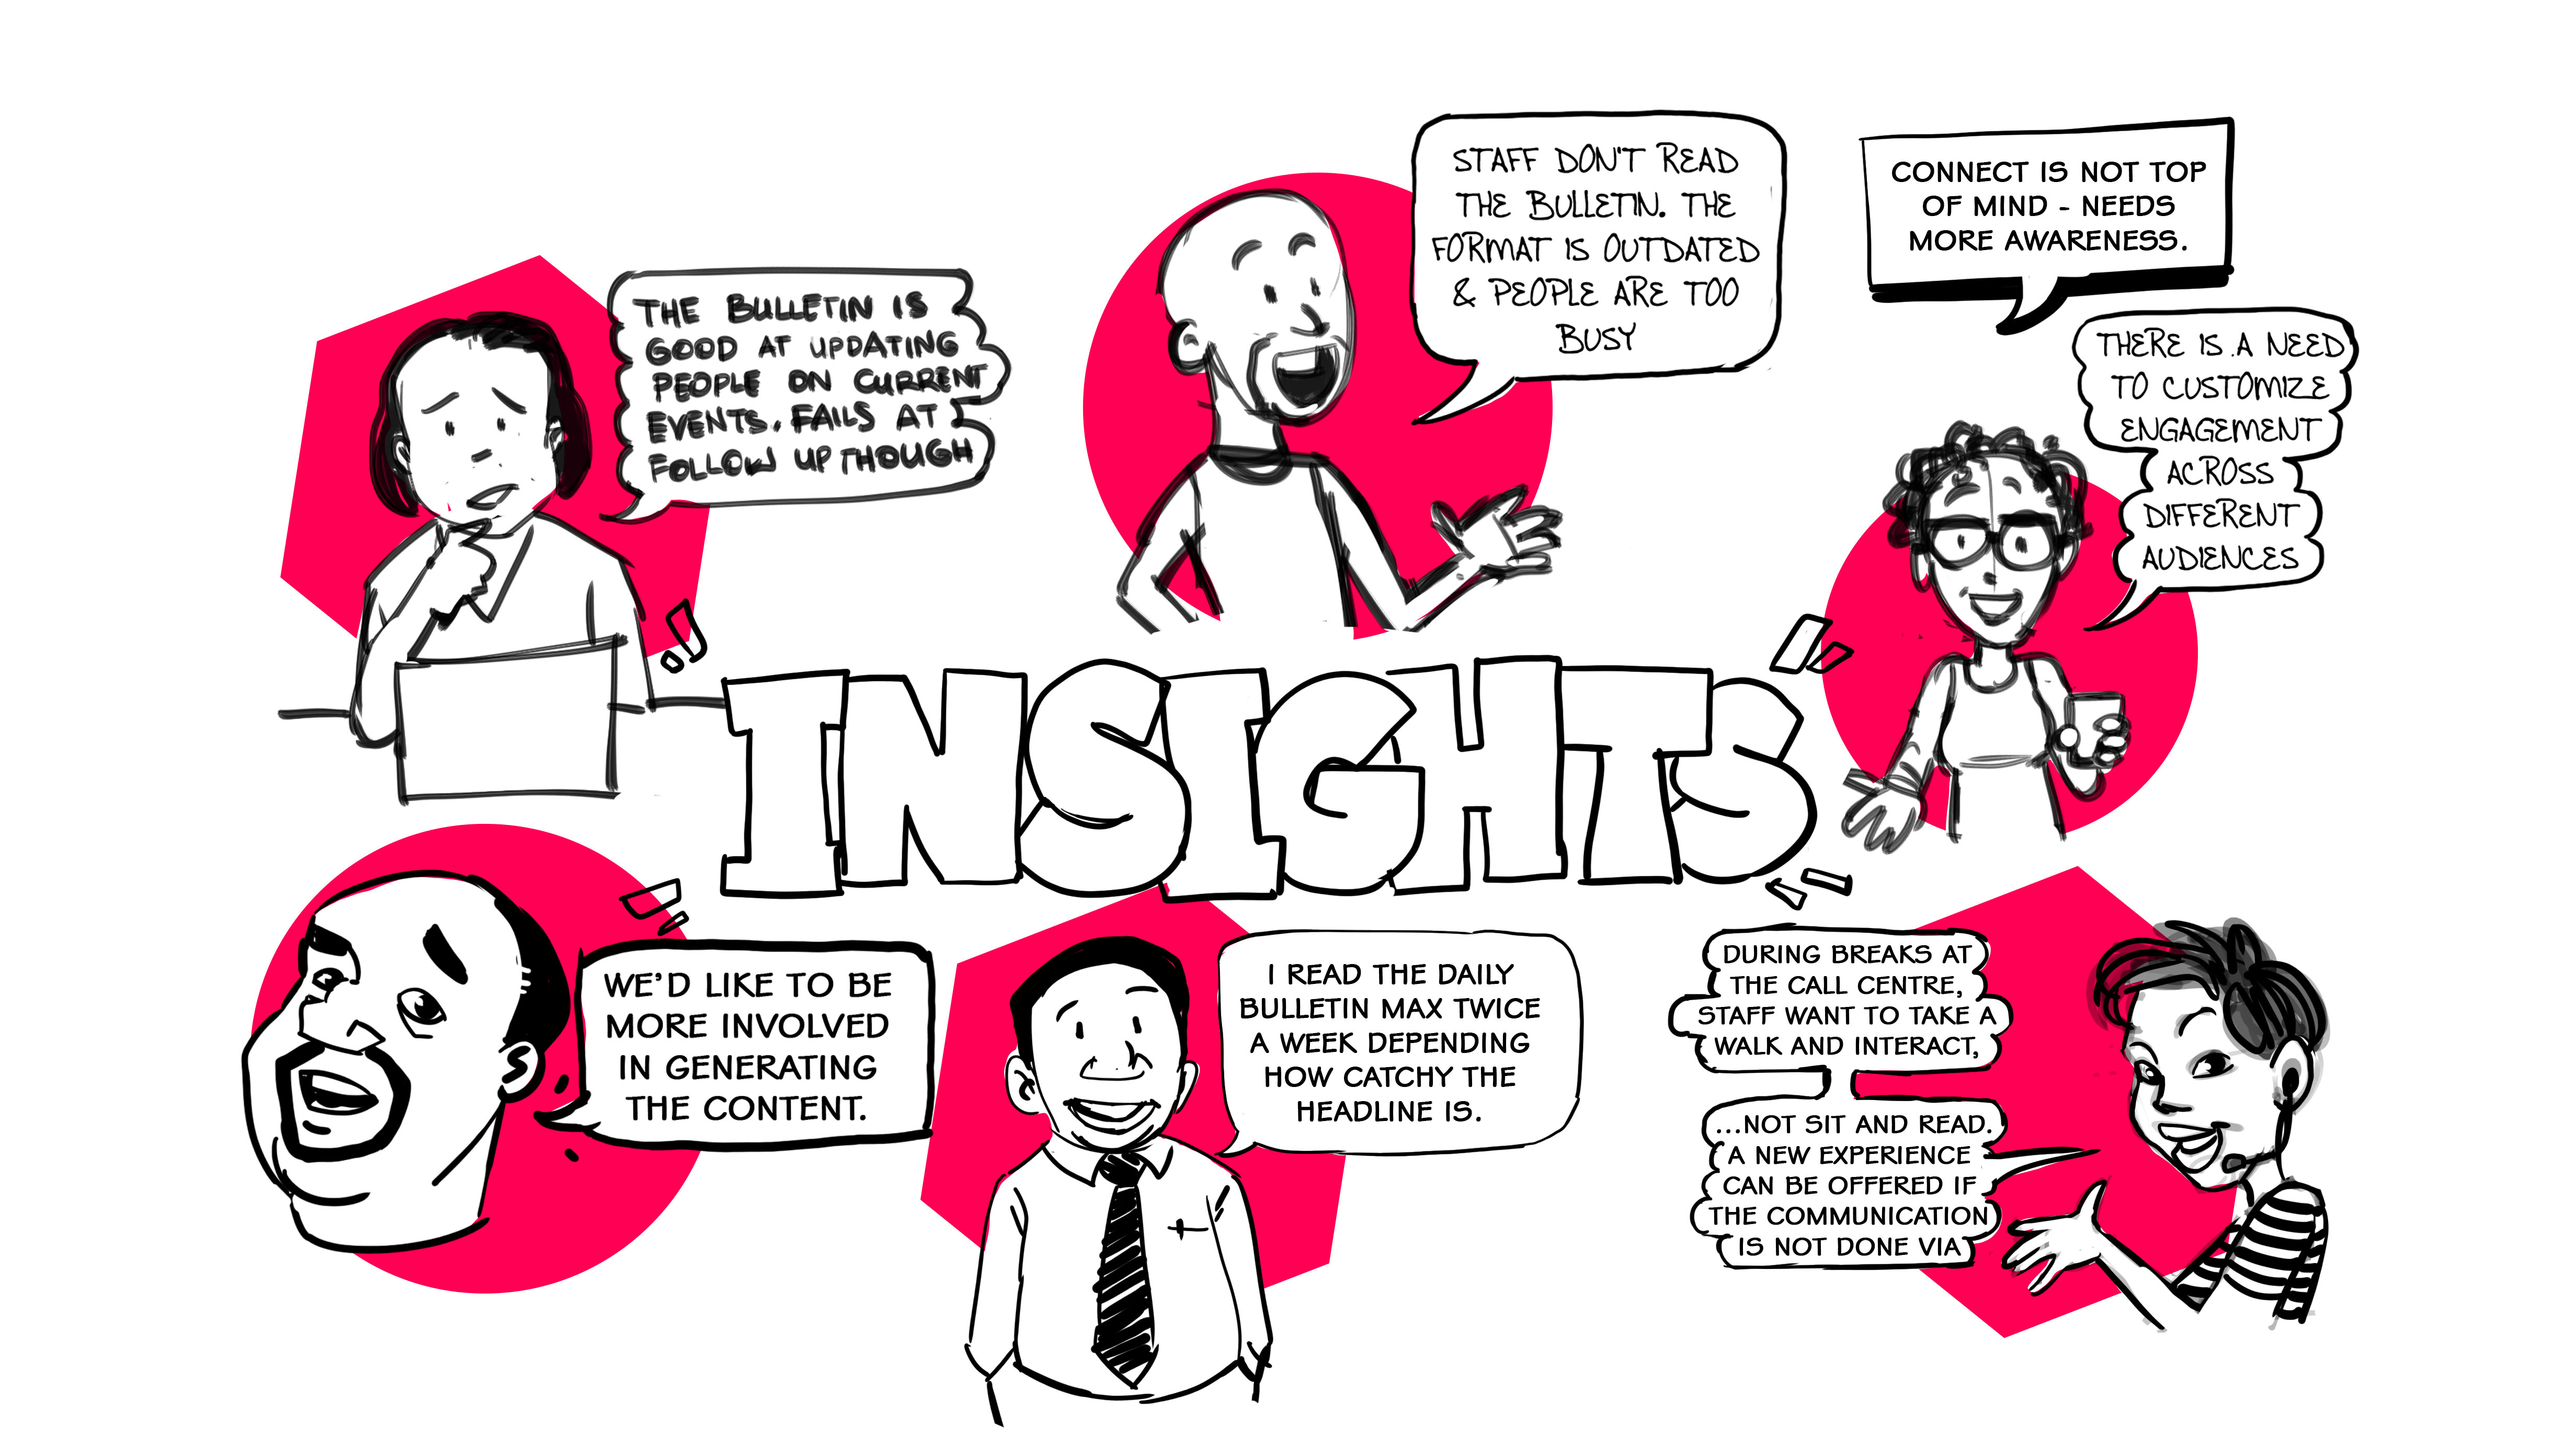 THE BULLETIN IS
GOOD AT UPDATING
PEOPLE ON CURRENT
EVENTS. FAILS AT
FOLLOW UP THOUGH
STAFF DON'T READ
THE BULLETIN. THE
FORMAT IS OUTDATED
& PEOPLE ARE TOO
BUSY
CONNECT IS NOT TOP
OF MIND - NEEDS
MORE AWARENESS.
THERE IS A NEED
TO CUSTOMIZE
ENGAGEMENT
ACROSS
DIFFERENT
AUDIENCES
INSIGHTS
WE'D LIKE TO BE
MORE INVOLVED
IN GENERATING
THE CONTENT.
I READ THE DAILY
BULLETIN MAX TWICE
A WEEK DEPENDING
HOW CATCHY THE
HEADLINE IS.
DURING BREAKS AT
THE CALL CENTRE,
STAFF WANT TO TAKE A
WALK AND INTERACT,
...NOT SIT AND READ.
A NEW EXPERIENCE
CAN BE OFFERED IF
THE COMMUNICATION
IS NOT DONE VIA